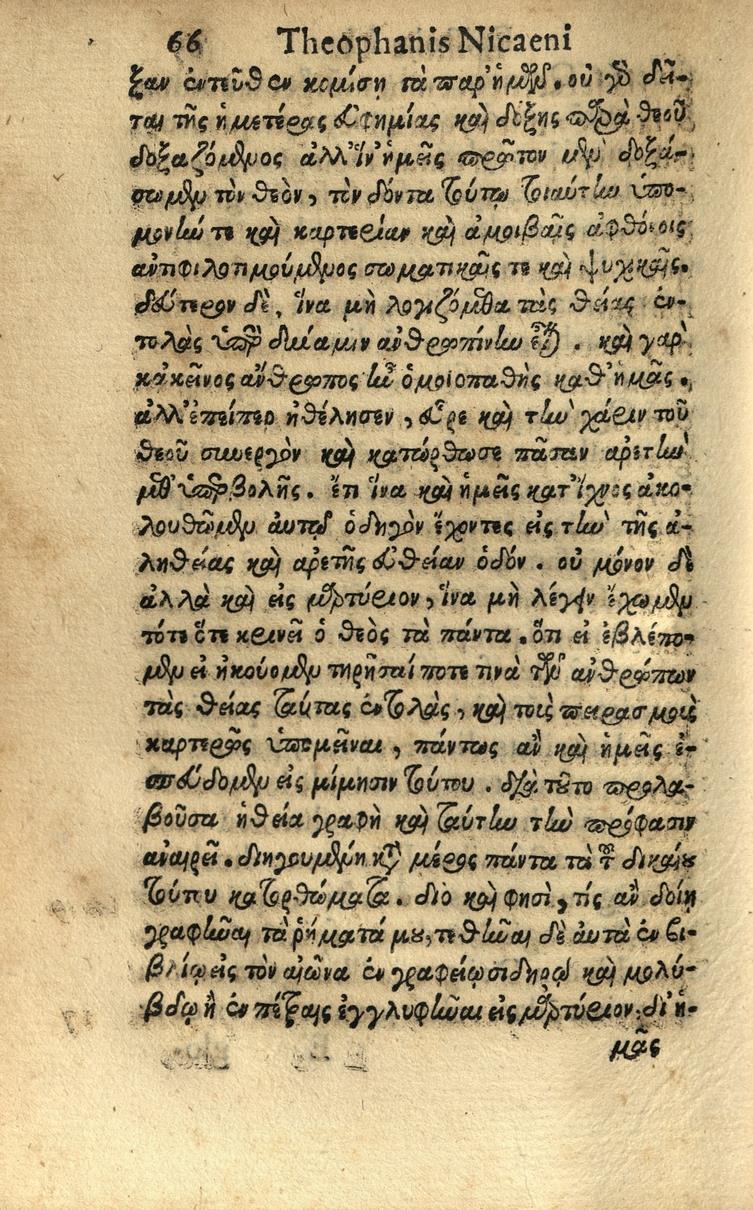 66 Theophanis Nicaeni
ξαν ἐντεῦθεν κομίσῃ τὰ παρ' ἡμῶν. οὐ γὰρ δεῖ-
ται τῆς ἡμετέρας εὐφημίας καὶ δόξης παρὰ θεοῦ
δοξαζόμενος ἀλλ' ἵν' ἡμεῖς πρῶτον μὲν δοξά-
σωμεν τὸν θεὸν, τὸν δόντα τούτῳ τοιαύτην ὑπο-
μονήν τε καὶ καρτερίαν καὶ ἀμοιβαῖς ἀφθόνοις
ἀντιφιλοτιμούμενος σωματικαῖς τε καὶ ψυχικαῖς.
δεύτερον δὲ, ἵνα μὴ λογιζόμεθα τὰς θείας ἐν-
τολὰς ὑπὲρ δύναμιν ἀνθρωπίνην εἶναι. καὶ γὰρ
κἀκεῖνος ἄνθρωπος ἦν ὁμοιοπαθὴς καθ' ἡμᾶς.
ἀλλ' ἐπείπερ ἠθέλησεν, εὗρε καὶ τὴν χάριν τοῦ
θεοῦ συνεργὸν καὶ κατώρθωσε πᾶσαν ἀρετὴν
μεθ' ὑπερβολῆς. ἔτι ἵνα καὶ ἡμεῖς κατ' ἴχνος ἀκο-
λουθῶμεν αὐτῷ ὁδηγὸν ἔχοντες εἰς τὴν τῆς ἀ-
ληθείας καὶ ἀρετῆς εὐθεῖαν ὁδόν. οὐ μόνον δὲ
ἀλλὰ καὶ εἰς μαρτύριον, ἵνα μὴ λέγειν ἔχωμεν
τότε ὅτε κρινεῖ ὁ θεὸς τὰ πάντα. ὅτι εἰ ἐβλέπο-
μεν εἰ ἠκούομεν τηρῆσαί ποτε τινὰ τῶν ἀνθρώπων
τὰς θείας ταύτας ἐντολὰς, καὶ τοῖς πειρασμοῖς
καρτερῶς ὑπομεῖναι, πάντως ἂν καὶ ἡμεῖς ἐ-
σπεύδομεν εἰς μίμησιν τούτου. διὰ τοῦτο προλα-
βοῦσα ἡ θεία γραφὴ καὶ ταύτην τὴν πρόφασιν
ἀναιρεῖ. διηγουμένη κατὰ μέρος πάντα τὰ τοῦ δικαίου
τούτου κατορθώματα. διὸ καὶ φησὶ, τίς ἂν δοίη
γραφῆναι τὰ ῥήματά μου, τεθῆναι δὲ αὐτὰ ἐν βι-
βλίῳ εἰς τὸν αἰῶνα ἐν γραφείῳ σιδηρῷ καὶ μολύ-
βδῳ ἢ ἐν πέτραις ἐγγλυφῆναι εἰς μαρτύριον. δι' ἡ-
μᾶς